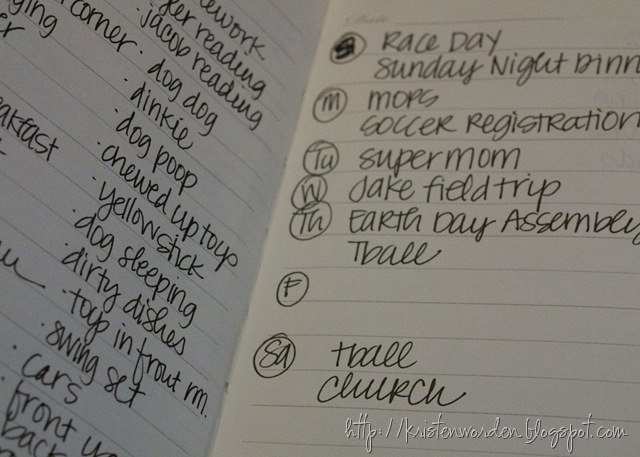 corner
reading
· jacob reading
· dog dog
· dinkie
· dog poop
· chewed up toyp
· yellow stick
· dog sleeping
· dirty dishes
· toyp in front rm.
· swing set
· cars
· front
back
S Race Day
Sunday Night Dinn
M MOPS
Soccer Registration
Tu supermom
W Jake field trip
Th Earth Day Assembly
Tball
F
Sa Tball
Church
http://kristenworden.blogspot.com